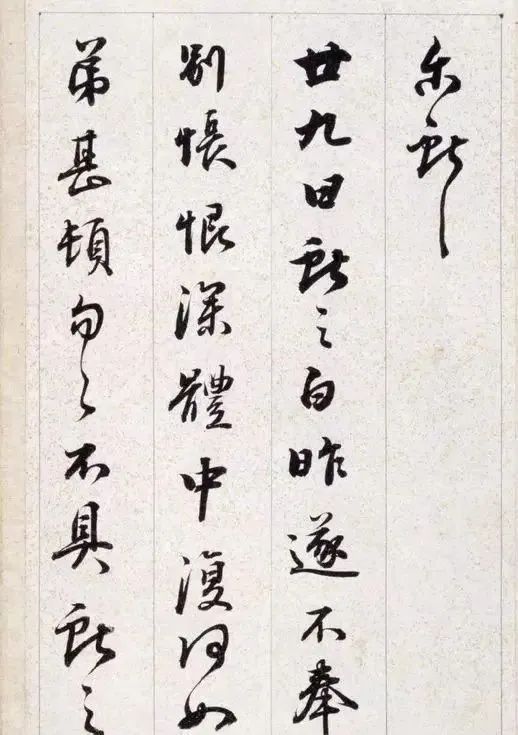 獻
廿九日獻之白昨遂不奉
別悵恨深體中復何如
弟甚頓匆々不具獻之